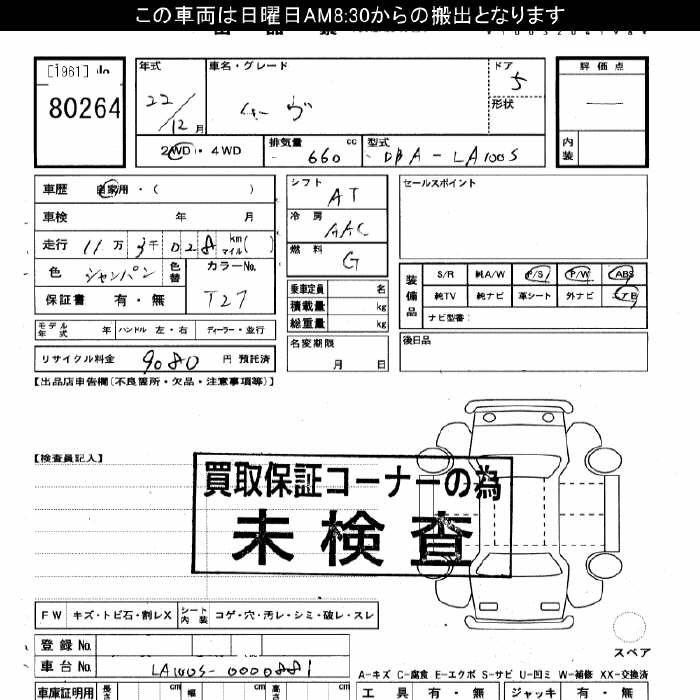 この車両は日曜日AM8:30からの搬出となります
[1961]
80264
年式
22/12月
車名・グレード
ムーヴ
ドア
5
形状
評価点
内装
2WD・4WD
排気量
660 cc
型式
DBA-LA100S
車歴 自家用・( )
車検 年 月
走行 11万3千028 km マイル( )
色 シャンパン 色替 カラーNo. T27
保証書 有・無
モデル年式 年 ハンドル 左・右 ディーラー・並行
リサイクル料金 9080 円 預託済
シフト AT
冷房 AAC
燃料 G
乗車定員 名
積載量 kg
総重量 kg
名変期限
月 日
セールスポイント
装備品
S/R 純A/W P/S P/W ABS
純TV 純ナビ 革シート 外ナビ エアB
ナビ型番:
後日品
【出品店申告欄(不良箇所・欠品・注意事項等)】
【検査員記入】
買取保証コーナーの為
未検査
FW キズ・トビ石・割レX シート内装 コゲ・穴・汚レ・シミ・破レ・スレ
スペア
登録No.
車台No. LA100S-0000881
A-キズ C-腐食 E-エクボ S-サビ U-凹ミ W-補修 XX-交換済
車庫証明用 長さ cm 幅 cm 高さ cm
工具 有・無 ジャッキ 有・無